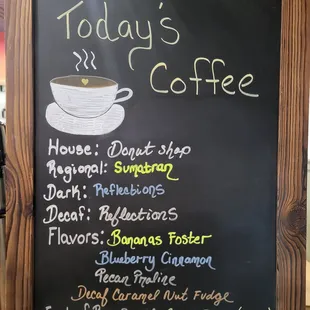 Today's
Coffee
House: Donut shop
Regional: Sumatran
Dark: Reflections
Decaf: Reflections
Flavors: Bananas Foster
Blueberry Cinnamon
Pecan Praline
Decaf Caramel Nut Fudge